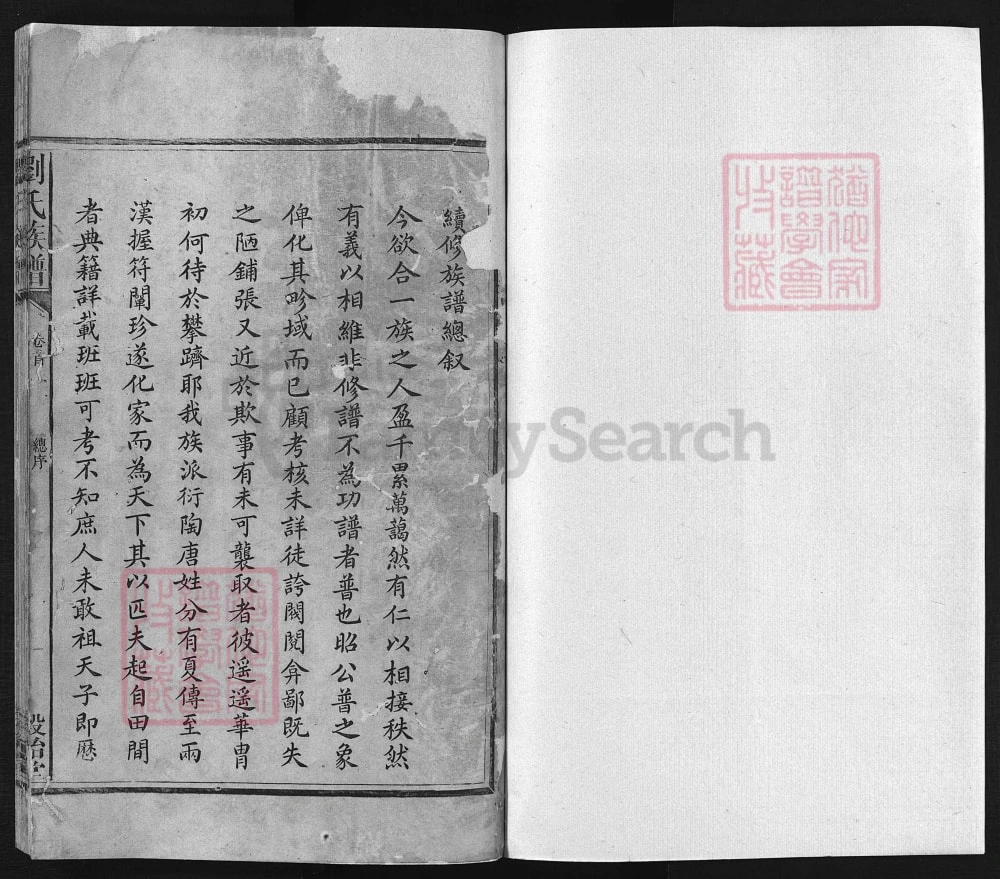 續修族譜總叙
今欲合一族之人盈千累萬藹然有仁以相接秩然
有義以相維非修譜不為功譜者普也昭公普之象
俾化其畛域而已顧考核未詳徒誇閥閱弇鄙既失
之陋鋪張又近於欺事有未可襲取者彼遥遥華胄
初何待於攀躋耶我族派衍陶唐姓分有夏傳至兩
漢握符闡珍遂化家而為天下其以匹夫起自田間
者典籍詳載班班可考不知庶人未敢祖天子即歷
劉氏族譜
卷首
總序
譜學會
收藏
FamilySearch